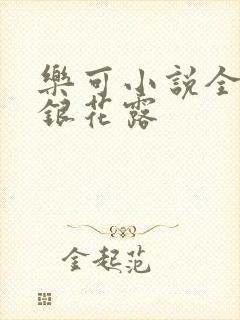 樂可小說全
銀花露
金起范